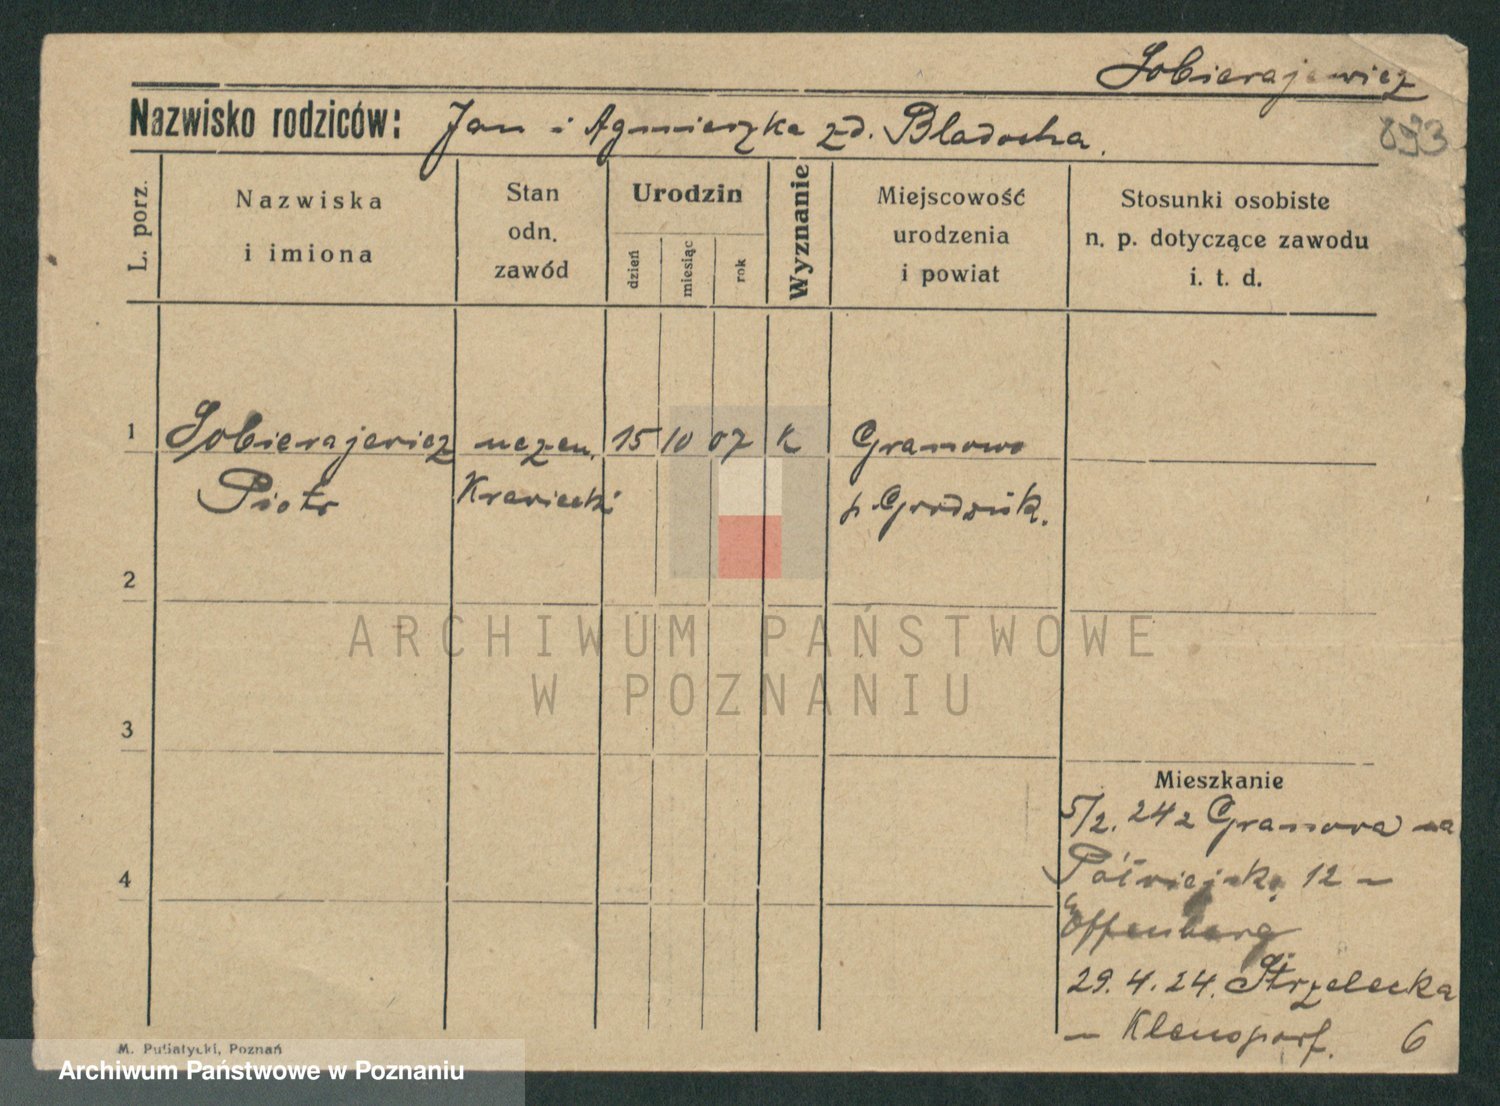 Sobierajewicz
893
Nazwisko rodziców: Jan i Agnieszka zd. Bladocha.
L. porz.
Nazwiska
i imiona
Stan
odn.
zawód
Urodzin
dzień
miesiąc
rok
Wyznanie
Miejscowość
urodzenia
i powiat
Stosunki osobiste
n. p. dotyczące zawodu
i. t. d.
1 Sobierajewicz uczeń. 15 10 07 K Granowo
Piotr Krawiecki p. Grodzisk.
2
ARCHIWUM PAŃSTWOWE
W POZNANIU
3
Mieszkanie
5/2. 24 z Granowa na
4
Półwiejską 12 –
Offenberg
29.4.24. Strzelecka
6
M. Putiatycki, Poznań
Archiwum Państwowe w Poznaniu